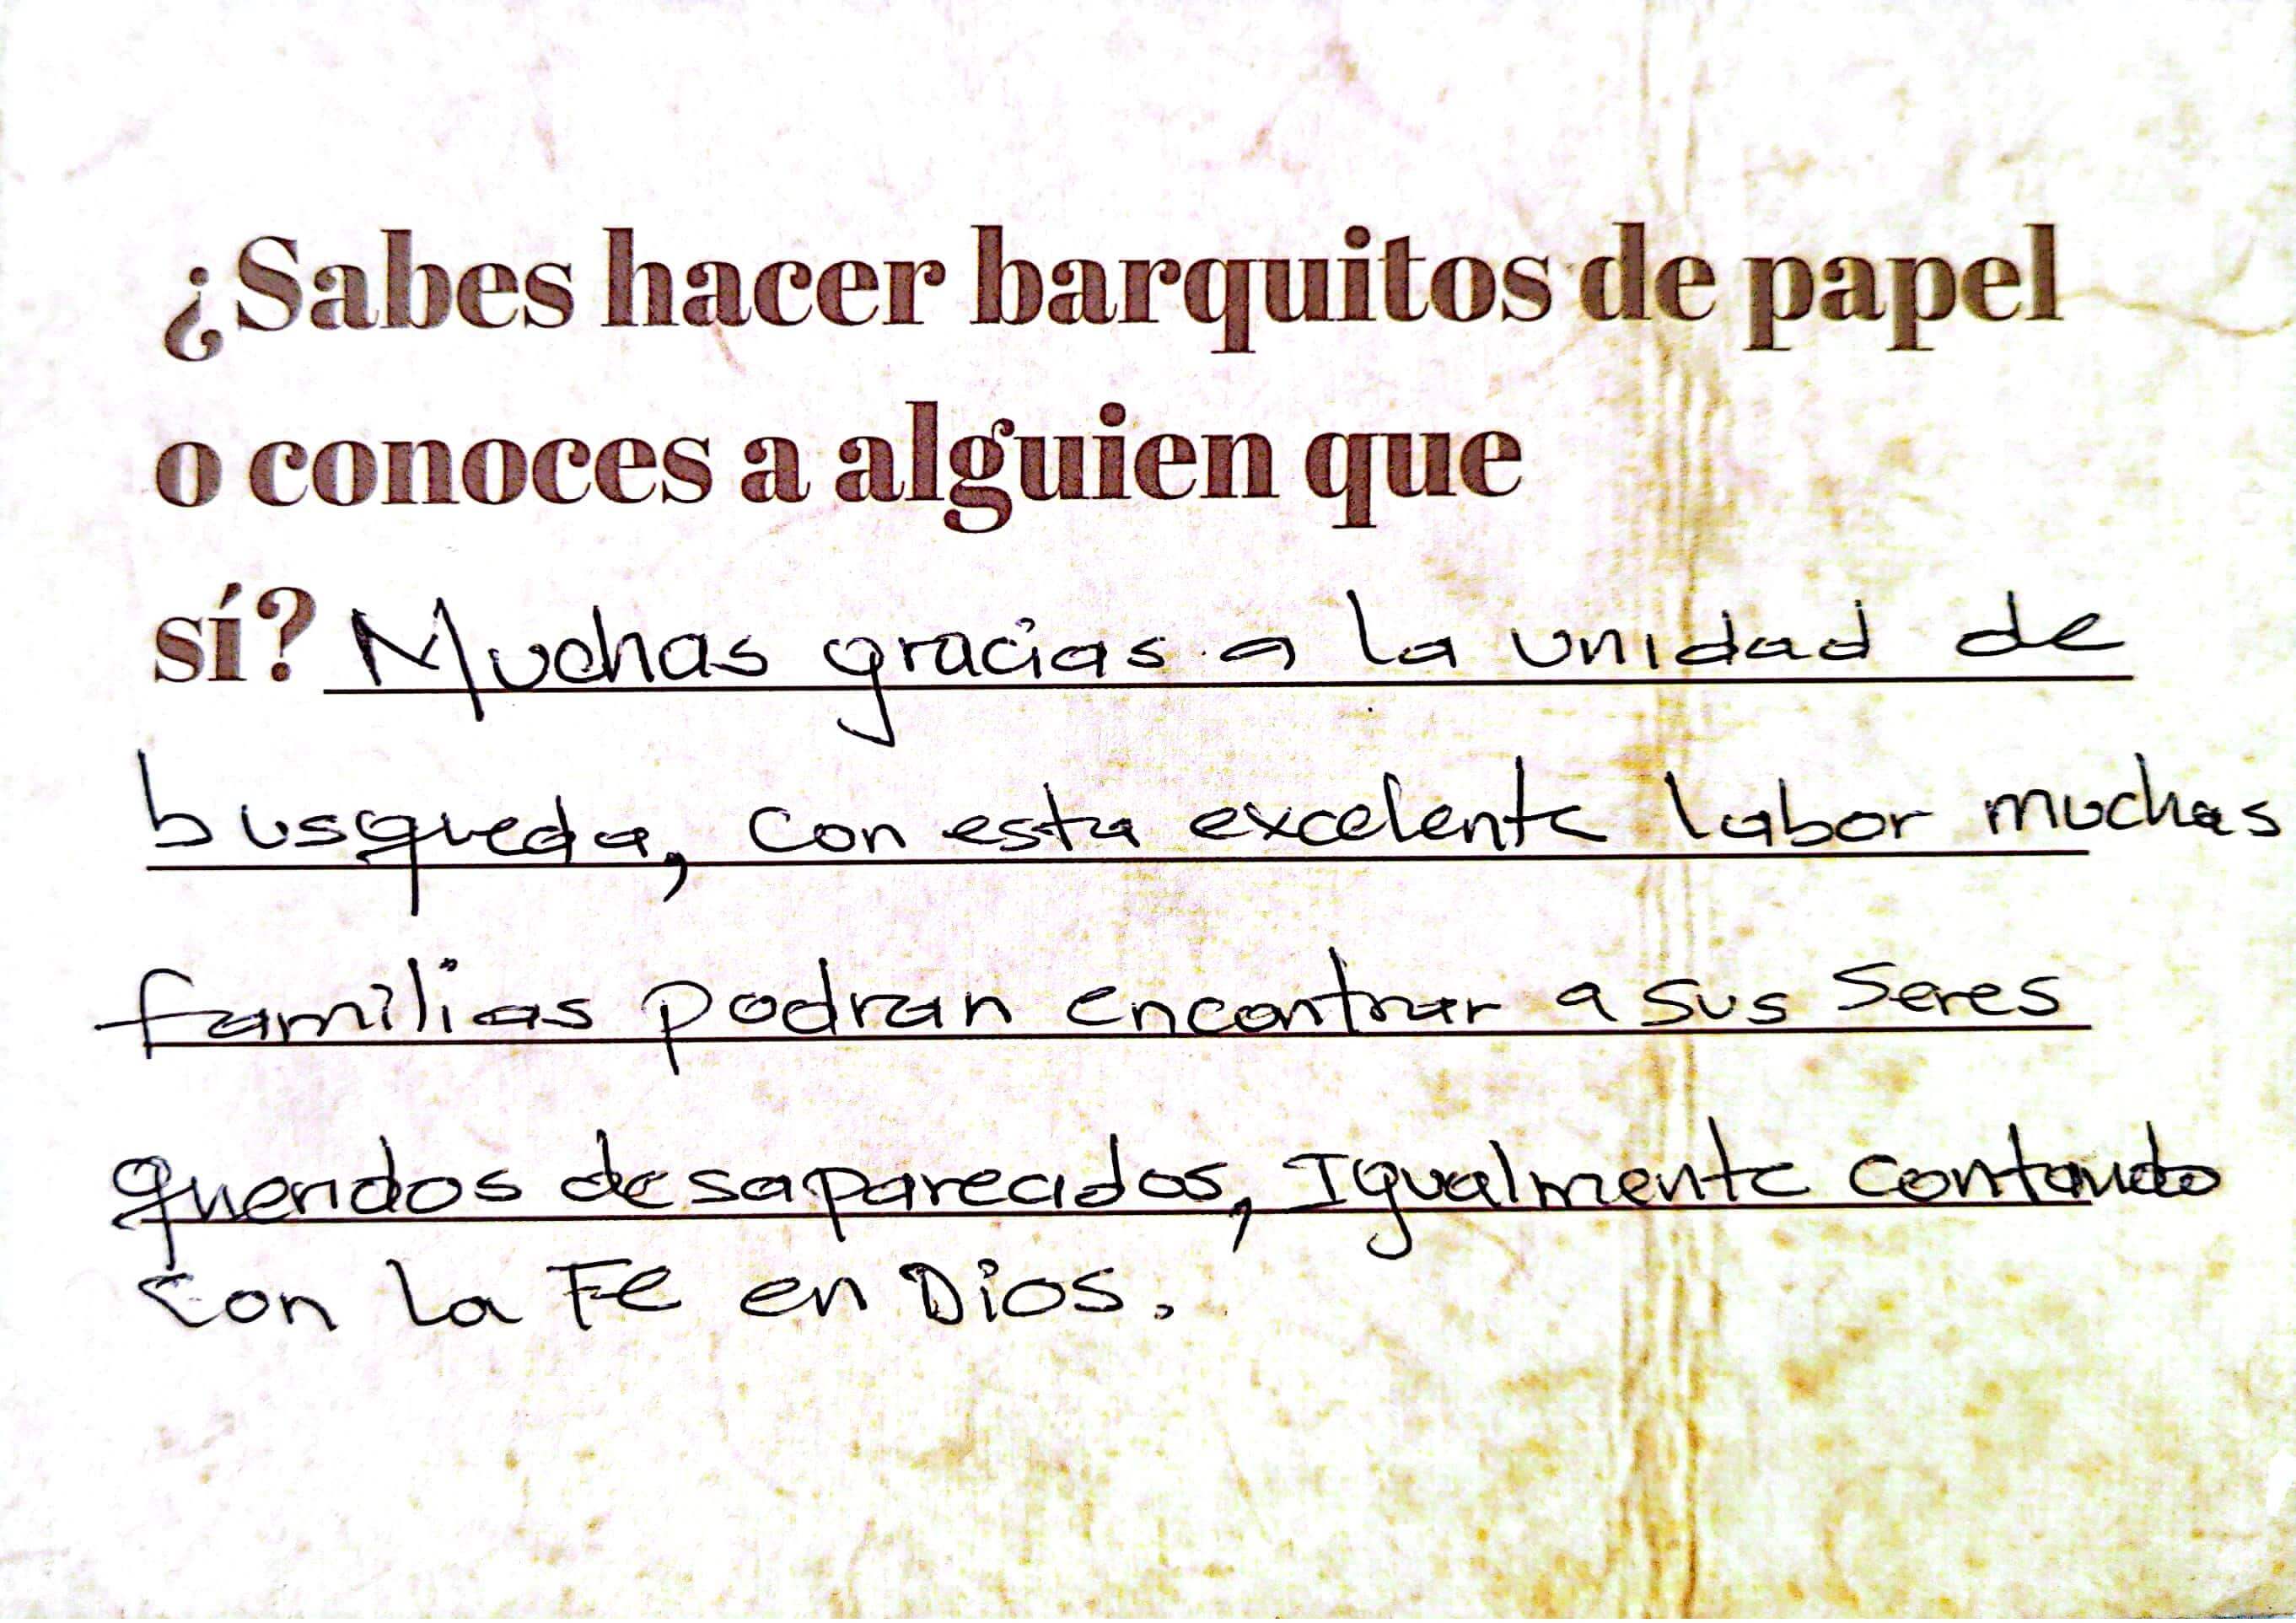 ¿Sabes hacer barquitos de papel
o conoces a alguien que
sí? Muchas gracias a la unidad de
busqueda, con esta excelente labor muchas
familias podran encontrar a sus seres
queridos desaparecidos, Igualmente contando
con la Fe en Dios.